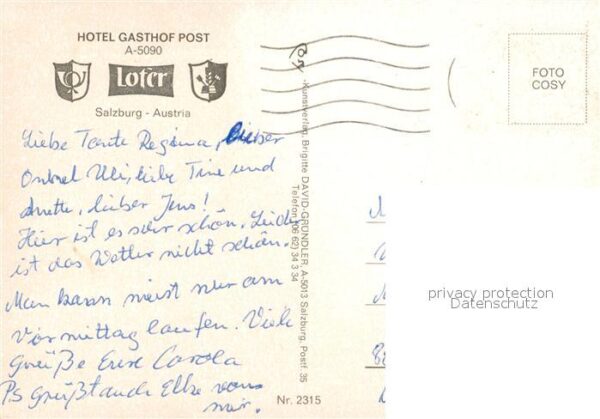 HOTEL GASTHOF POST
A-5090
Lofer
Salzburg - Austria
Liebe Tante Regina, lieber
Onkel Uli, liebe Tine und
Anette, lieber Jens!
Hier ist es sehr schön. Leider
ist das Wetter nicht schön.
Man kann meist nur am
Vormittag laufen. Viele
Grüße Eure Carola
PS Grüßt auch Elke von
mir.
Kunstverlag Brigitte DAVID-GRÜNDLER, A-5013 Salzburg, Postf. 35
Telefon (06 62) 34 3 34
Nr. 2315
FOTO
COSY
privacy protection
Datenschutz